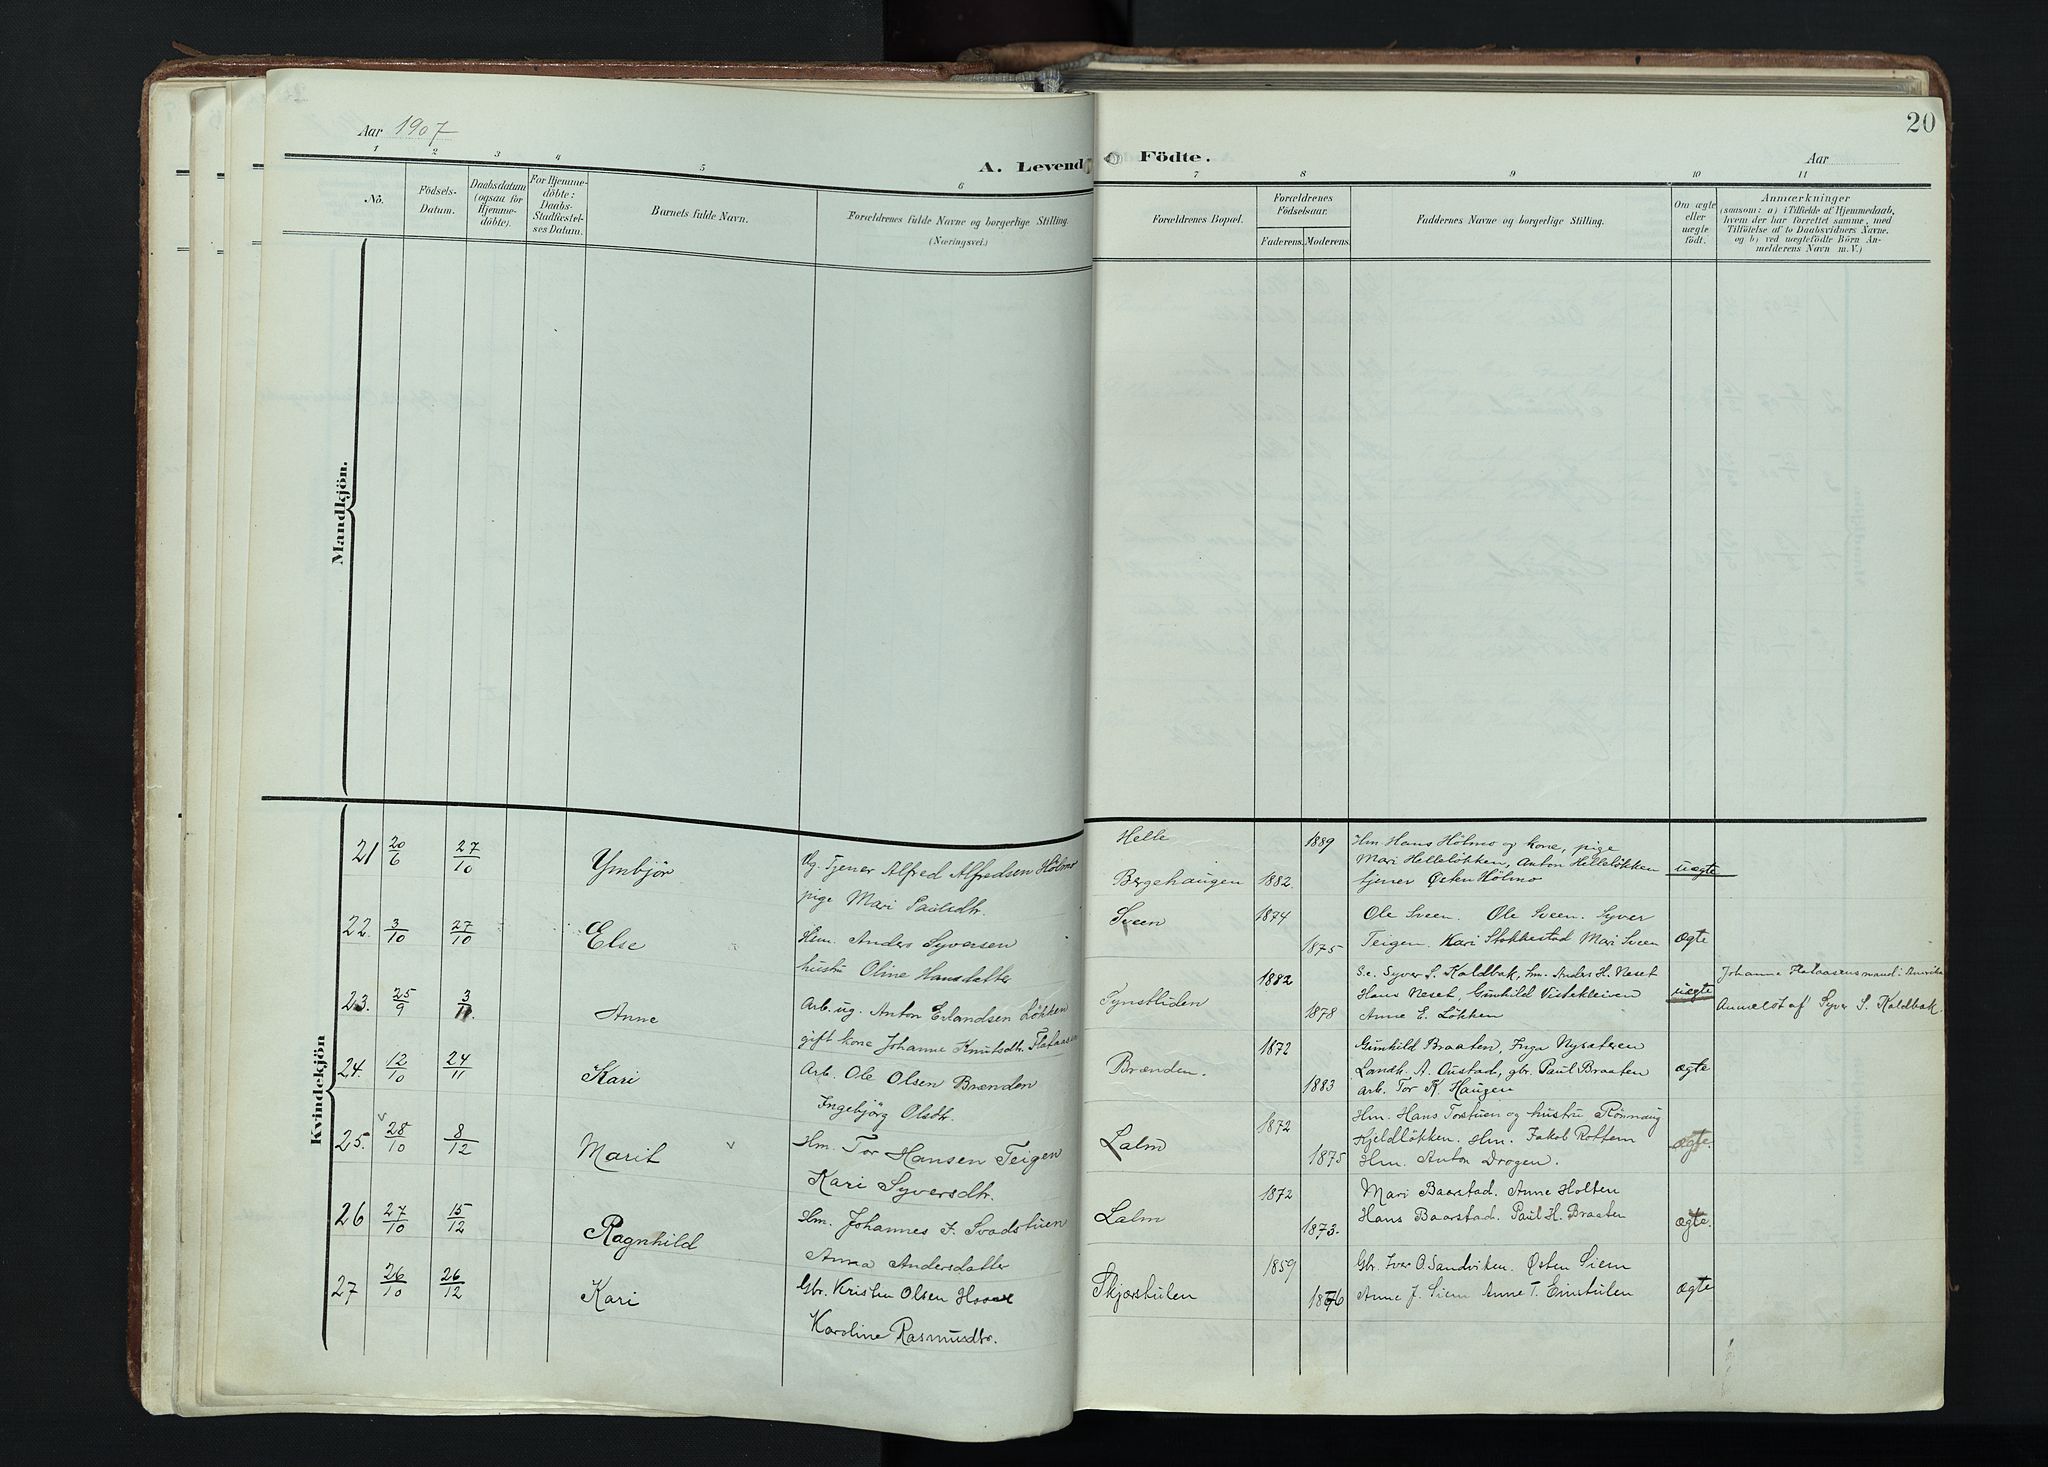 Aar 1907
20
A. Levende Födte.
Aar
1 2 3 4 5 6 7 8 9 10 11
No.
Födsels-
Datum.
Daabsdatum
(ogsaa for
Hjemme-
döbte).
For Hjemme-
döbte:
Daabs-
Stadfæstel-
ses Datum.
Barnets fulde Navn.
Forældrenes fulde Navne og borgerlige Stilling.
(Næringsvei.)
Forældrenes Bopæl.
Forældrenes
Födselsaar.
Faderens. Moderens.
Faddernes Navne og borgerlige Stilling.
Om ægte
eller
uægte
födt.
Anmærkninger
(saasom: a) i Tilfælde af Hjemmedaab,
hvem der har forrettet samme, med
Tilföielse af to Daabsvidners Navne.
og b) ved uægtefödte Börn An-
melderens Navn m. V.)
Mandkjön.
Kvindekjön
21 20/6 27/10 Ymbjör
Ug. Tjener Alfred Alfredsen Hölmo
pige Mari Paulsdtr.
Helle
Bergehaugen
1882 1889
Hm Hans Hölmo og kone, pige
Mari Helleløkken, Anton Helleløkken
tjener Østen Hölmo
uægte
22. 3/10 27/10 Else
Hsm. Anders Syversen
hustru Oline Hansdatter
Sveen
1874 1875
Ole Sveen. Ole Sveen. Syver
Teigen. Kari Stokkestad Mari Sveen
ægte
23. 25/9 3/11. Anne
Arb. ug. Anton Erlandsen Løkken
gift kone Johanne Knutsdtr. Flataasen
Tynstliden
1882 1878
Se. Syver S. Kaldbak, Sm. Anders H. Neset
Hans Neset, Gunhild Vistekleiven
Anne E. Løkken
uægte
Johanne Flataasens mand i Amerika
Anmeldt af Syver S. Kaldbak.
24. 12/10 24/11 Kari
Arb. Ole Olsen Brænden
Ingebjörg Olsdtr.
Brænden.
1872 1883
Gunhild Braaten, Inga Nysæteren
Landh. A. Oustad, gbr. Paul Braaten
arb. Tor K. Haugen
ægte
25. 28/10 8/12 Marit
Hm. Tor Hansen Teigen
Kari Syversdtr.
Lalm
1872 1875
Hm. Hans Torstuen og hustru Rönnaug
Kjeldløkken. Hm. Jakob Rottem
Hm. Anton Drogen.
ægte.
26 27/10 15/12 Ragnhild
Hm. Johannes J. Svadstuen
Anna Andersdatter
Lalm
1872 1873.
Mari Baarstad. Anne Holten
Hans Baarstad. Paul H. Braaten
ægte.
27 26/10 26/12 Kari
Gbr. Kristen Olsen
Karoline Rasmusdtr.
Skjærstulen
1859 1876
Gbr. Iver O. Sandviken. Østen Siem
Anne J. Siem Anne T. Einstulen
ægte